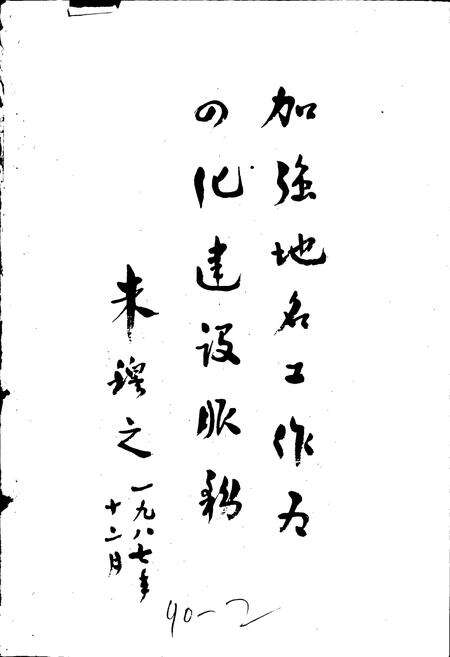 加强地名工作为
四化建设服务
朱穆之
一九八七年
十二月
90-2